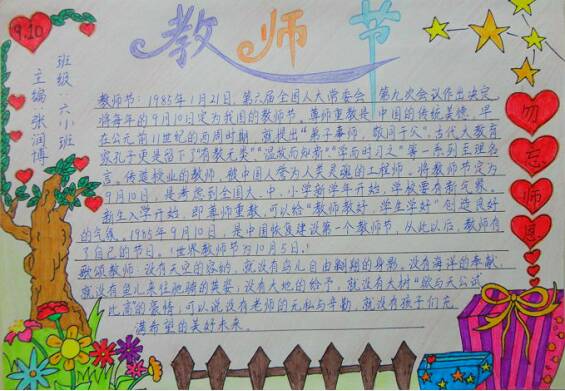 9.10
教师节
班级:六小班
主编张润博
教师节:1985年1月21日,第六届全国人大常委会第九次会议作出决定,
将每年的9月10日定为我国的教师节。尊师重教是中国的传统美德,早
在公元前11世纪的西周时期,就提出"弟子事师,敬同于父"。古代大教育
家孔子更是留下了"有教无类""温故而知新""学而时习之"等一系列至理名
言。传道授业的教师,被中国人誉为人类灵魂的工程师。将教师节定为
9月10日,是考虑到全国大、中、小学新学年开始,学校要有新气象。
新生入学开始,即尊师重教,可以给"教师教好、学生学好"创造良好
的气氛。1985年9月10日,是中国恢复建设第一个教师节,从此以后,教师有
了自己的节日。(世界教师节为10月5日。)
歌颂教师:没有天空的容纳,就没有鸟儿自由翱翔的身影。没有海洋的奉献,
就没有鱼儿来往驰骋的英姿。没有大地的给予,就没有大树"欲与天公试
比高"的豪情,可以说没有老师的无私与辛勤,就没有孩子们充
满希望的美好未来。
勿
忘
师
恩